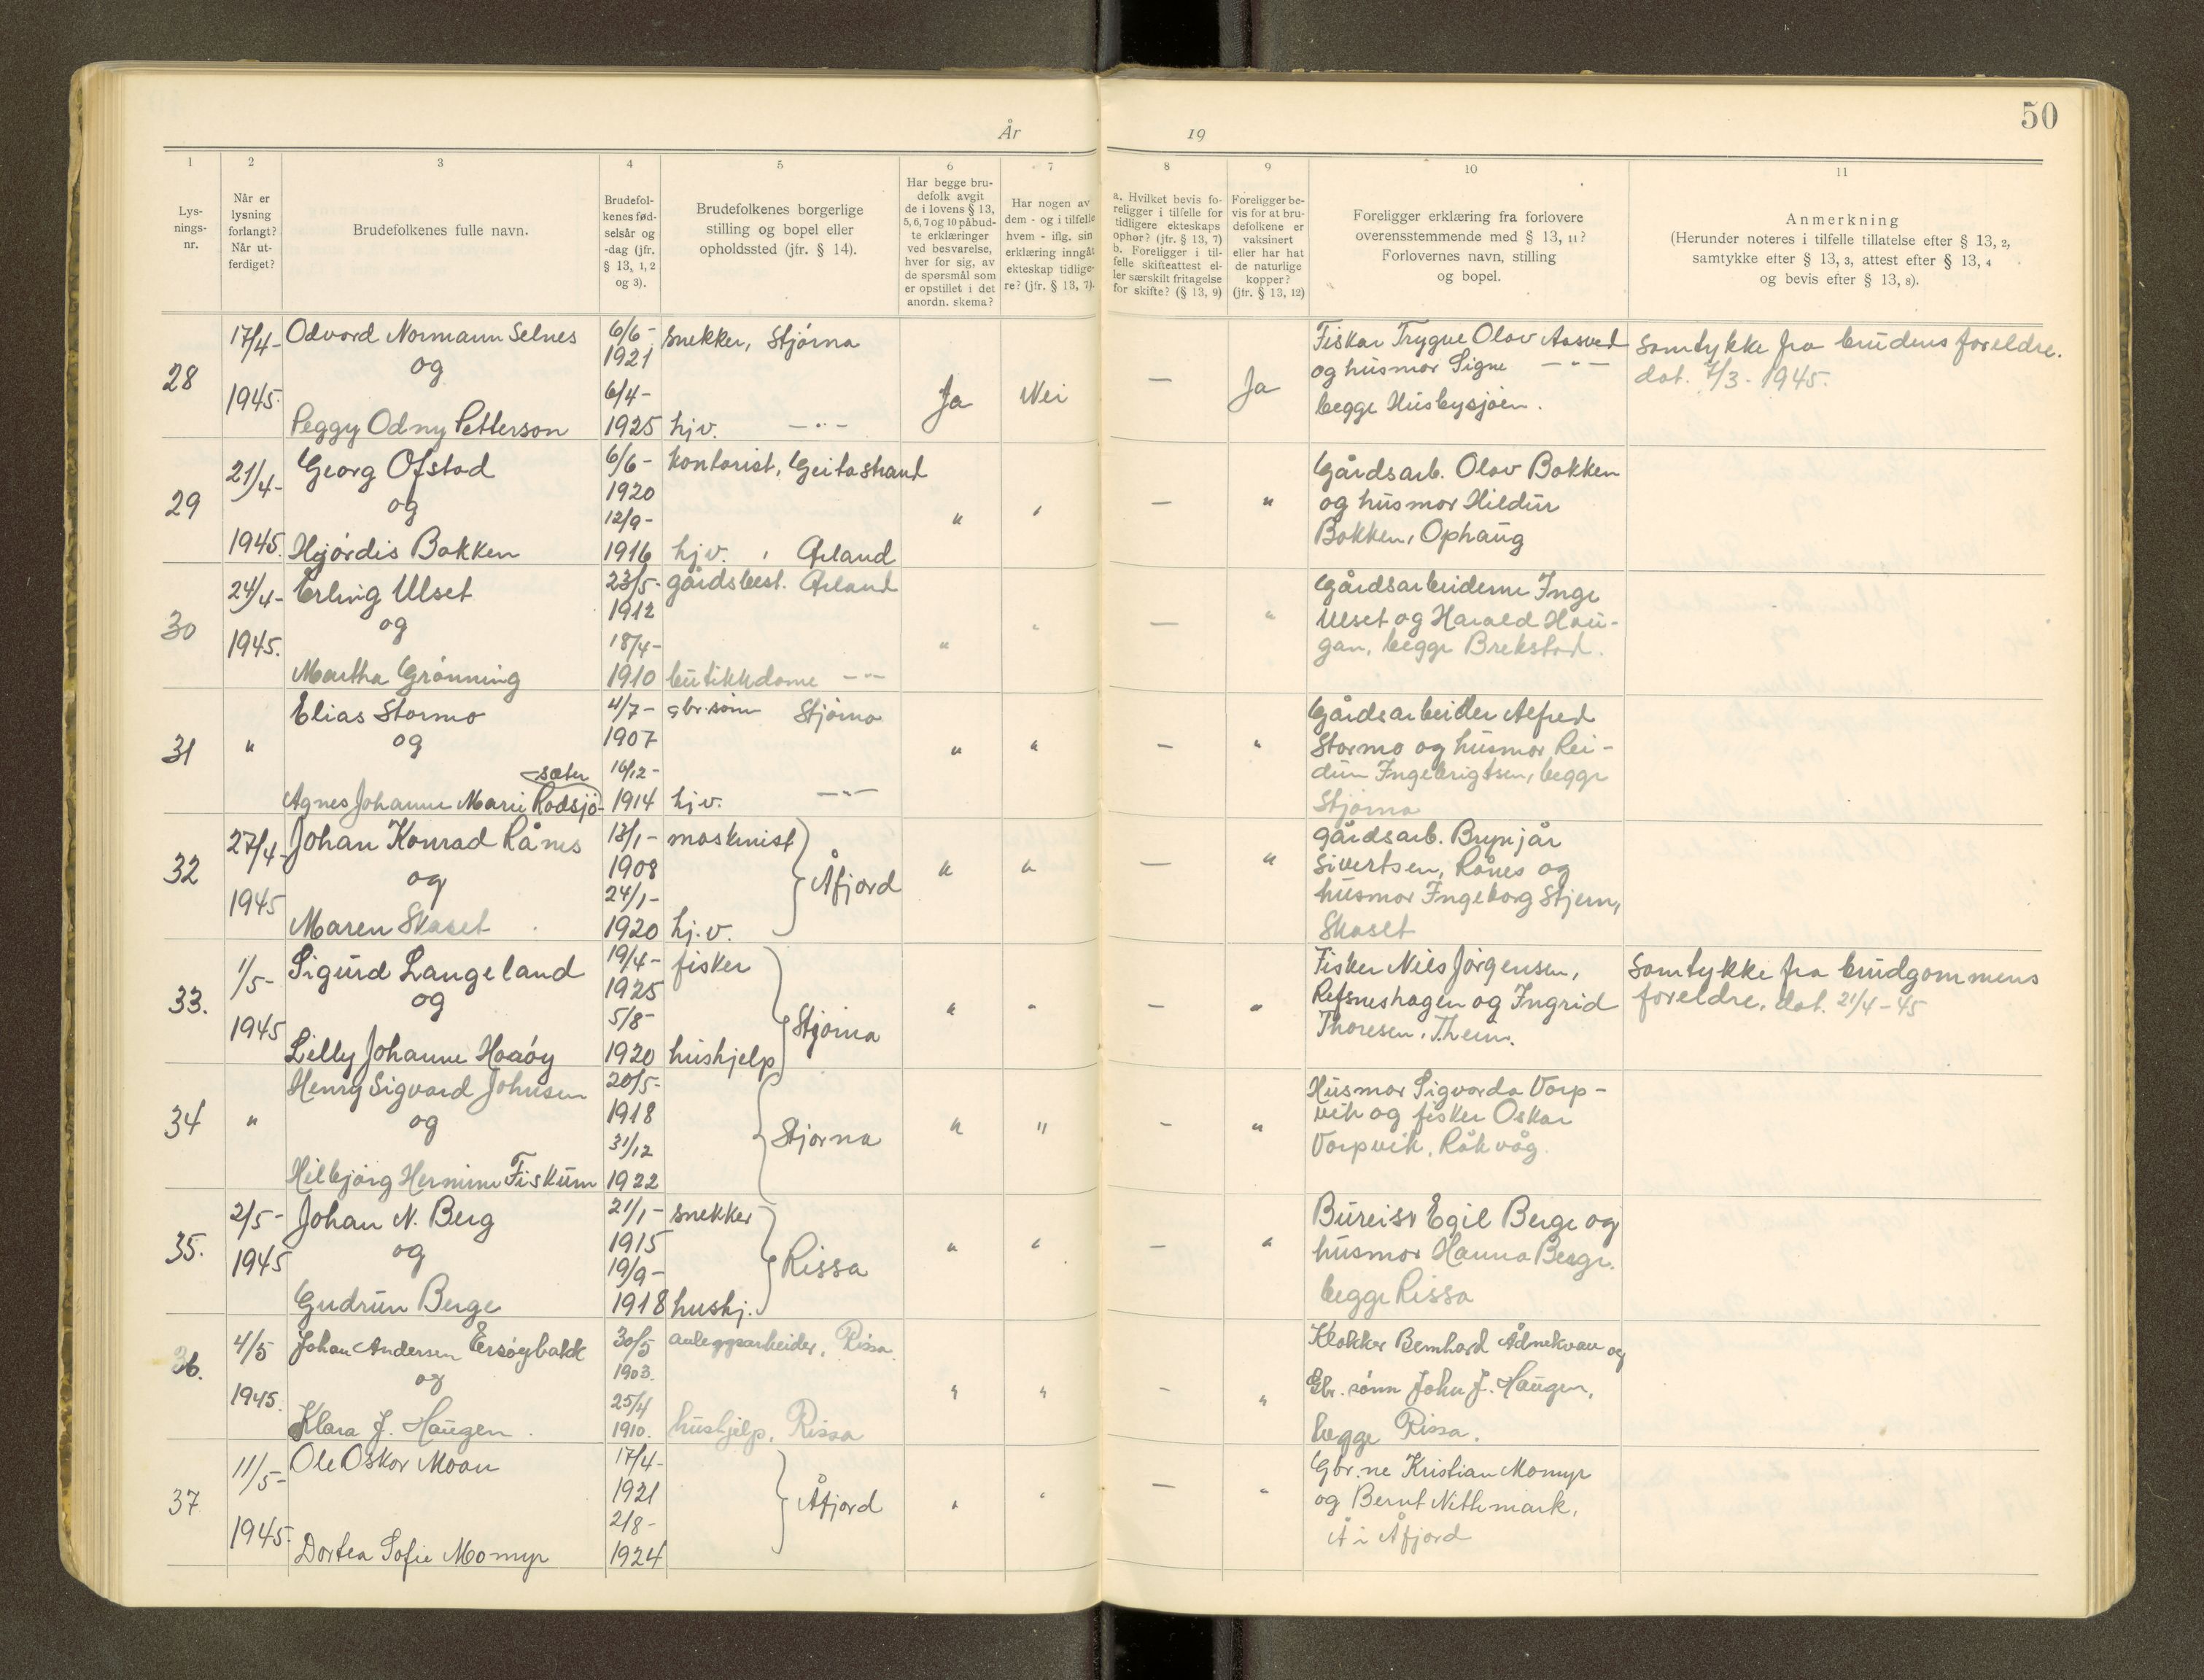 50
År
19
1
2
3
4
5
6
7
8
9
10
11
Lys-
nings-
nr.
Når er
lysning
forlangt?
Når ut-
ferdiget?
Brudefolkenes fulle navn.
Brudefol-
kenes fød-
selsår og
-dag (jfr.
§ 13, 1, 2
og 3).
Brudefolkenes borgerlige
stilling og bopel eller
opholdssted (jfr. § 14).
Har begge bru-
defolk avgit
de i lovens § 13,
5, 6, 7 og 10 påbud-
te erklæringer
ved besvarelse,
hver for sig, av
de spørsmål som
er opstillet i det
anordn. skema?
Har nogen av
dem - og i tilfelle
hvem - iflg. sin
erklæring inngåt
ekteskap tidlige-
re? (jfr. § 13, 7).
a. Hvilket bevis fo-
religger i tilfelle for
tidligere ekteskaps
ophør? (jfr. § 13, 7)
b. Foreligger i til-
felle skifteattest el-
ler særskilt fritagelse
for skifte? (§ 13, 9)
Foreligger be-
vis for at bru-
defolkene er
vaksinert
eller har hat
de naturlige
kopper?
(jfr. § 13, 12)
Foreligger erklæring fra forlovere
overensstemmende med § 13, 11?
Forlovernes navn, stilling
og bopel.
Anmerkning
(Herunder noteres i tilfelle tillatelse efter § 13, 2,
samtykke efter § 13, 3, attest efter § 13, 4
og bevis efter § 13, 8).
28
17/4-
1945.
Odvard Normann Selnes
og
Peggy Odny Petterson
6/6-
1921
6/4-
1925
snekker, Stjørna
hjv. -"-
Ja
Nei
—
Ja
Fisker Trygve Olav Aasved
og husmor Signe -"-
begge Husbysjøen.
Samtykke fra brudens foreldre.
dat. 7/3 - 1945.
29
21/4-
1945.
Georg Ofstad
og
Hjørdis Bakken
6/6-
1920
12/9-
1916
kontorist, Geitastrand
hjv. , Ørland
"
"
—
"
Gårdsarb. Olav Bakken
og husmor Hildur
Bakken, Ophaug
30
24/4-
1945.
Erling Ulset
og
Martha Grønning
23/5-
1912
18/4-
1910
gårdsbest. Ørland
butikkdame -"-
"
"
—
"
Gårdsarbeiderne Inge
Ulset og Harald Hau-
gan, begge Brekstad.
31
"
Elias Stormo
og
sæter
Agnes Johanne Marie Rødsjø-
4/7-
1907
16/12-
1914
gbr.sønn Stjørna
hjv. -"-
"
"
—
"
Gårdsarbeider Alfred
Stormo og husmor Rei-
dun Ingebrigtsen, begge
Stjørna
32
27/4-
1945
Johan Konrad Rånes
og
Maren Skaset
13/1-
1908
24/1-
1920
maskinist
hj.v.
Åfjord
"
"
—
"
Gårdsarb. Brynjar
Sivertsen, Rånes og
husmor Ingeborg Stjern,
Skaset
33.
1/5-
1945
Sigurd Langeland
og
Lilly Johanne Haaøy
19/4-
1925
5/8-
1920
fisker
hushjelp
Stjørna
"
"
—
"
Fisker Nils Jørgensen,
Refsneshagen og Ingrid
Thoresen,
Samtykke fra brudgommens
foreldre, dat. 21/4 - 45
34
"
Henry Sigvard Johnsen
og
Hilbjørg Hermine Fiskum
20/5-
1918
31/12
1922
Stjørna
"
"
—
"
Husmor Sigvarda Vorp-
vik og fisker Oskar
Vorpvik, Råkvåg.
35.
2/5-
1945
Johan N. Berg
og
Gudrun Berge
21/1-
1915
19/9-
1918
snekker
hushj.
Rissa
"
"
—
"
Bureisr Egil Berge og
husmor Hanna Berge.
begge Rissa
36.
4/5
1945.
Johan Andersen Ersøybakk
og
Klara J. Haugen
30/5
1903.
25/4
1910.
anleggsarbeider, Rissa.
hushjelp, Rissa
"
"
—
"
Klokker Bernhard Ådnekvam og
Gbr. sønn John J. Haugen,
begge Rissa.
37
11/5-
1945.
Ole Oskar Moan
Dortea Sofie Momyr
17/4-
1921
2/8-
1924
Åfjord
"
"
—
"
Gbr.ne Kristian Momyr
og Bernt
Å i Åfjord